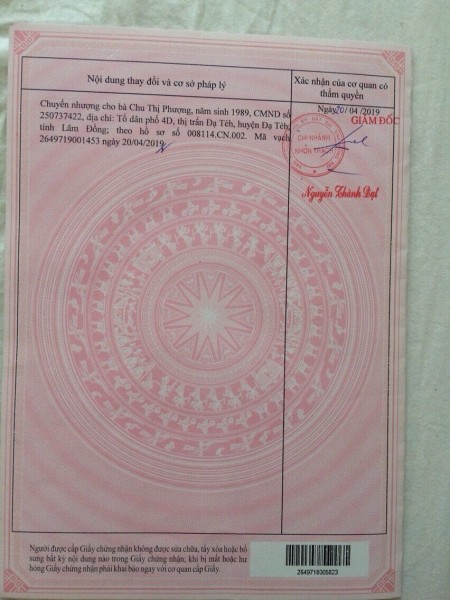 Nội dung thay đổi và cơ sở pháp lý
Xác nhận của cơ quan có
thẩm quyền
Chuyển nhượng cho bà Chu Thị Phượng, năm sinh 1989, CMND số
250737422, địa chỉ: Tổ dân phố 4D, thị trấn Đạ Tẻh, huyện Đạ Tẻh,
tỉnh Lâm Đồng; theo hồ sơ số 008114.CN.002. Mã vạch
2649719001453 ngày 20/04/2019
Ngày 20/ 04 /2019
GIÁM ĐỐC
CHI NHÁNH
NHƠN TRẠCH
Nguyễn Thành Đạt
Người được cấp Giấy chứng nhận không được sửa chữa, tẩy xóa hoặc bổ
sung bất kỳ nội dung nào trong Giấy chứng nhận; khi bị mất hoặc hư
hỏng Giấy chứng nhận phải khai báo ngay với cơ quan cấp Giấy.
2649718005823